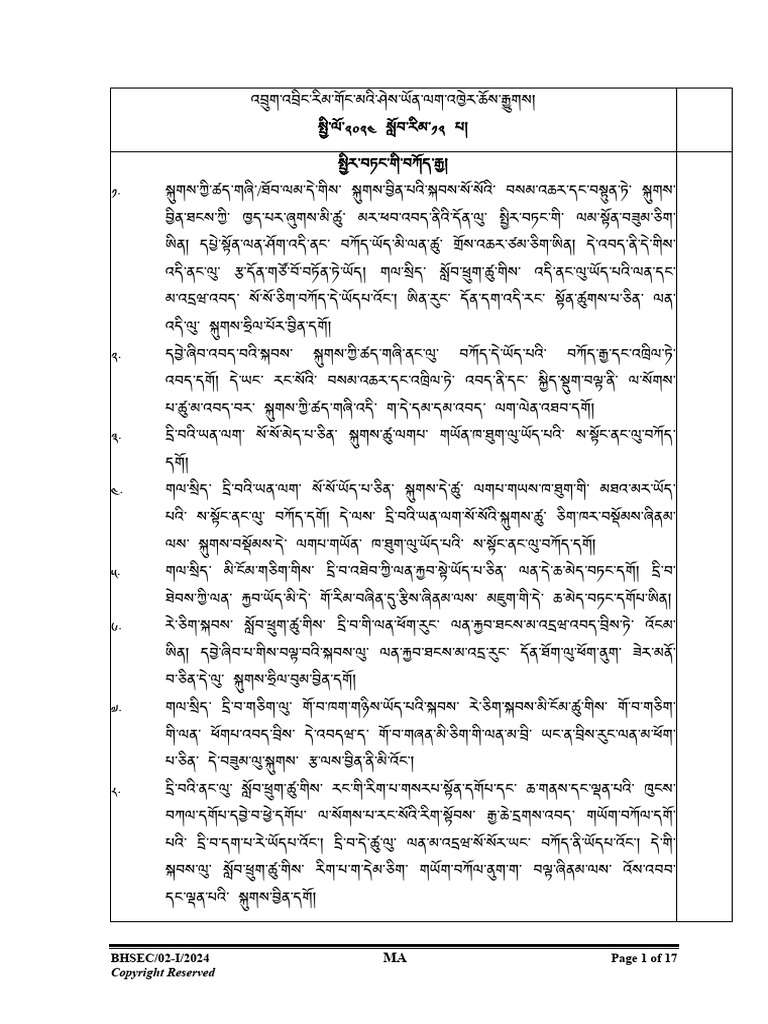 འབྲུག་འབྲིང་རིམ་གོང་མའི་ཤེས་ཡོན་ལག་འཁྱེར་ཆོས་རྒྱུགས།
སྤྱི་ལོ་༢༠༢༤ སློབ་རིམ་༡༢ པ།
སྤྱིར་བཏང་གི་བཀོད་རྒྱ།
༡. སྐུགས་ཀྱི་ཚད་གཞི་/ཐོབ་ལམ་དེ་གིས་ སྐུགས་བྱིན་པའི་སྐབས་སོ་སོའི་ བསམ་འཆར་དང་བསྟུན་ཏེ་ སྐུགས་
བྱིན་ཐངས་ཀྱི་ ཁྱད་པར་ཞུགས་མི་ཚུ་ མར་ཕབ་འབད་ནིའི་དོན་ལུ་ སྤྱིར་བཏང་གི་ ལམ་སྟོན་བཟུམ་ཅིག་
ཨིན། དཔྱེ་སྟོན་ལན་ཤོག་འདི་ནང་ བཀོད་ཡོད་མི་ལན་ཚུ་ གྲོས་འཆར་ཙམ་ཅིག་ཨིན། དེ་འབད་ནི་དེ་གིས་
འདི་ནང་ལུ་ རྩ་དོན་གཙོ་བོ་བཏོན་ཏེ་ཡོད། གལ་སྲིད་ སློབ་ཕྲུག་ཚུ་གིས་ འདི་ནང་ལུ་ཡོད་པའི་ལན་དང་
མ་འདྲཝ་འབད་ སོ་སོ་ཅིག་བཀོད་དེ་ཡོདཔ་འོང་། ཨིན་རུང་ དོན་དག་འདི་རང་ སྟོན་ཚུགས་པ་ཅིན་ ལན་
འདི་ལུ་ སྐུགས་ཧྲིལ་པོར་བྱིན་དགོ།
༢. དབྱེ་ཞིབ་འབད་བའི་སྐབས་ སྐུགས་ཀྱི་ཚད་གཞི་ནང་ལུ་ བཀོད་དེ་ཡོད་པའི་ བཀོད་རྒྱ་དང་འཁྲིལ་ཏེ་
འབད་དགོ། དེ་ཡང་ རང་སོའི་ བསམ་འཆར་དང་འཁྲིལ་ཏེ་ འབད་ནི་དང་ སྐྱིད་སྡུག་བལྟ་ནི་ ལ་སོགས་
པ་ཚུ་མ་འབད་བར་ སྐུགས་ཀྱི་ཚད་གཞི་འདི་ ག་དེ་དམ་དམ་འབད་ ལག་ལེན་འཐབ་དགོ།
༣. དྲི་བའི་ཡན་ལག་ སོ་སོ་མེད་པ་ཅིན་ སྐུགས་ཚུ་ལགཔ་ གཡོན་ཁ་ཐུག་ལུ་ཡོད་པའི་ ས་སྟོང་ནང་ལུ་བཀོད་
དགོ།
༤. གལ་སྲིད་ དྲི་བའི་ཡན་ལག་ སོ་སོ་ཡོད་པ་ཅིན་ སྐུགས་དེ་ཚུ་ ལགཔ་གཡས་ཁ་ཐུག་གི་ མཐའ་མར་ཡོད་
པའི་ ས་སྟོང་ནང་ལུ་ བཀོད་དགོ། དེ་ལས་ དྲི་བའི་ཡན་ལག་སོ་སོའི་སྐུགས་ཚུ་ ཅིག་ཁར་བསྡོམས་ཞིནམ་
ལས་ སྐུགས་བསྡོམས་དེ་ ལགཔ་གཡོན་ ཁ་ཐུག་ལུ་ཡོད་པའི་ ས་སྟོང་ནང་ལུ་བཀོད་དགོ།
༥. གལ་སྲིད་ མི་ངོམ་གཅིག་གིས་ དྲི་བ་འཐེབ་ཀྱི་ལན་རྐྱབ་སྟེ་ཡོད་པ་ཅིན་ ལན་དེ་ཆ་མེད་བཏང་དགོ། དྲི་བ་
ཐེབས་ཀྱི་ལན་ རྐྱབ་ཡོད་མི་དེ་ གོ་རིམ་བཞིན་དུ་རྩིས་ཞིནམ་ལས་ མཇུག་གི་དེ་ ཆ་མེད་བཏང་དགོཔ་ཨིན།
༦. རེ་ཅིག་སྐབས་ སློབ་ཕྲུག་ཚུ་གིས་ དྲི་བ་གི་ལན་ཕོག་རུང་ ལན་རྐྱབ་ཐངས་མ་འདྲཝ་འབད་བྲིས་ཏེ་ འོངམ་
ཨིན། དབྱེ་ཞིབ་པ་གིས་བལྟ་བའི་སྐབས་ལུ་ ལན་རྐྱབ་ཐངས་མ་འདྲ་རུང་ དོན་ཐོག་ལུ་ཕོག་ནུག་ ཟེར་མནོ་
བ་ཅིན་དེ་ལུ་ སྐུགས་ཧྲིལ་བུམ་བྱིན་དགོ།
༧. གལ་སྲིད་ དྲི་བ་གཅིག་ལུ་ གོ་བ་ཁག་གཉིས་ཡོད་པའི་སྐབས་ རེ་ཅིག་སྐབས་མི་ངོམ་ཚུ་གིས་ གོ་བ་གཅིག་
གི་ལན་ ཕོགཔ་འབད་བྲིས་ དེ་འབདཝ་ད་ གོ་བ་གཞན་མི་ཅིག་གི་ལན་མ་བྲི་ ཡང་ན་བྲིས་རུང་ལན་མ་ཕོག་
པ་ཅིན་ དེ་བཟུམ་ལུ་སྐུགས་ རྩ་ལས་བྱིན་ནི་མི་འོང་།
༨. དྲི་བའི་ནང་ལུ་ སློབ་ཕྲུག་ཚུ་གིས་ རང་གི་རིག་པ་གསརཔ་སྟོན་དགོཔ་དང་ ཆ་གནས་དང་ལྡན་པའི་ ཁུངས་
བཀལ་དགོཔ་དབྱེ་བ་ཕྱེ་དགོཔ་ ལ་སོགས་པ་རང་སོའི་རིག་སྟོབས་ རྒྱ་ཆེ་དྲགས་འབད་ གཡོག་བཀོལ་དགོ་
པའི་ དྲི་བ་དག་པ་རེ་ཡོདཔ་འོང་། དྲི་བ་དེ་ཚུ་ལུ་ ལན་མ་འདྲཝ་སོ་སོར་ཡང་ བཀོད་ནི་ཡོདཔ་འོང་། དེ་གི་
སྐབས་ལུ་ སློབ་ཕྲུག་ཚུ་གིས་ རིག་པ་ག་དེམ་ཅིག་ གཡོག་བཀོལ་ནུག་ག་ བལྟ་ཞིནམ་ལས་ འོས་འབབ་
དང་ལྡན་པའི་ སྐུགས་བྱིན་དགོ།
BHSEC/02-I/2024 MA Page 1 of 17
Copyright Reserved